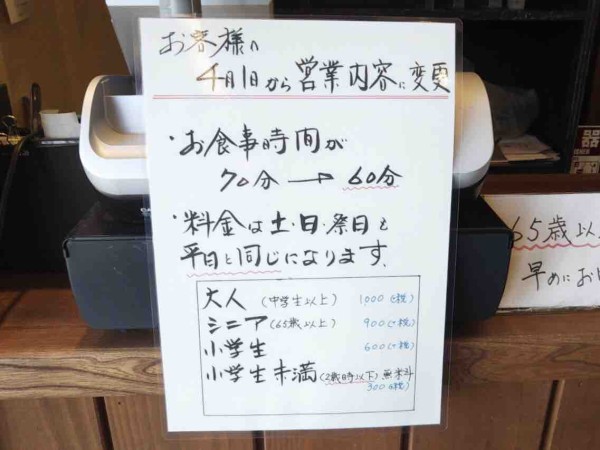 お客様へ
4月1日から営業内容に変更
・お食事時間が
70分→60分
・料金は土・日・祭日と
平日と同じになります。
大人(中学生以上) 1000(+税)
シニア(65歳以上) 900(+税)
小学生 600(+税)
小学生未満(2歳時以下)無料
300(+税)
65歳以
早めにお